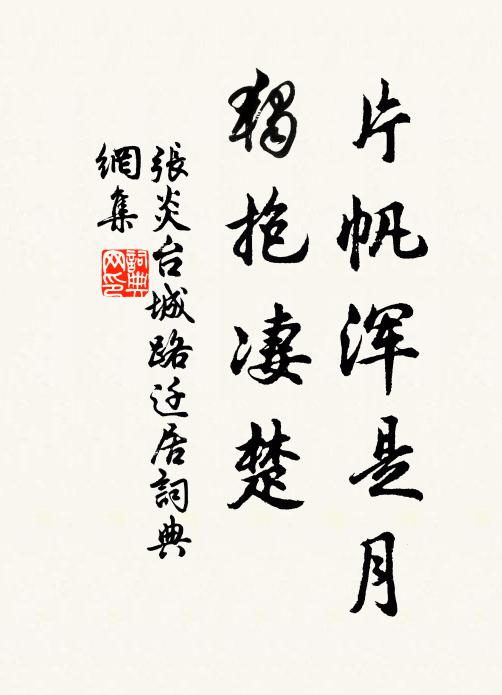 片帆浑是月
獨抱凄楚
張炎台城路迁居詞典
網集
詞典
网印